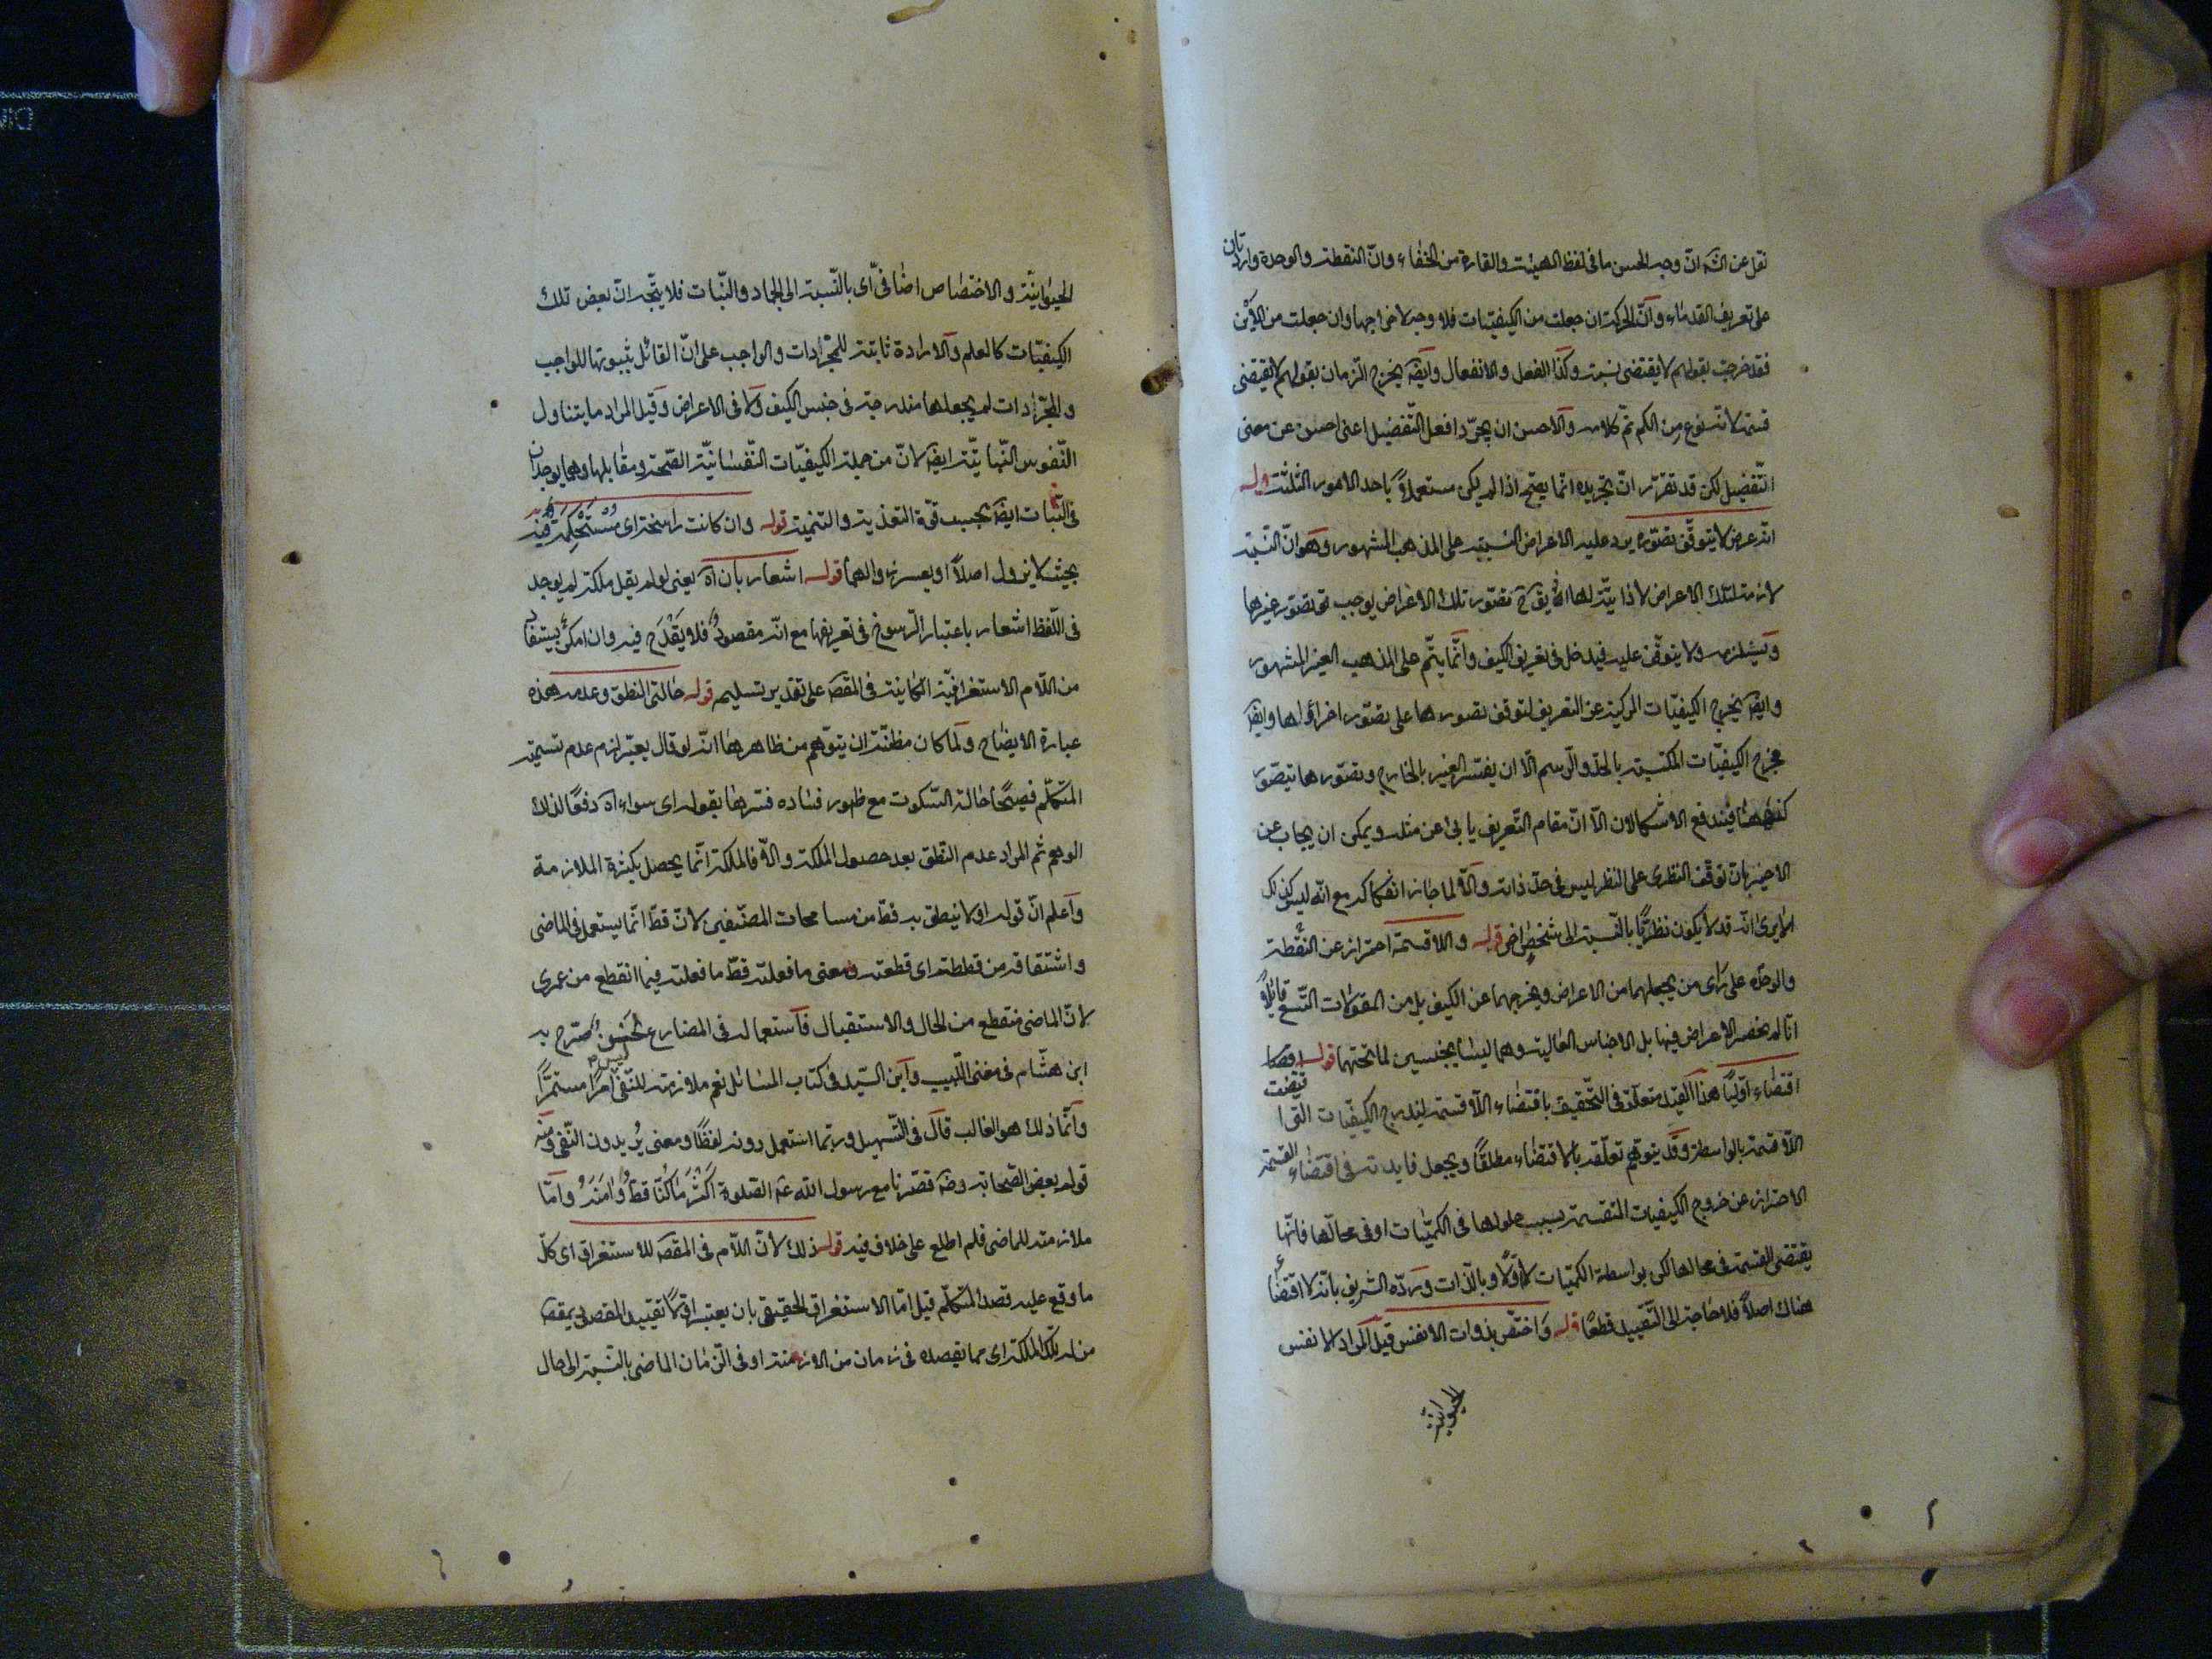 نقل عن الشه انّ وجه الحسن ما فى لفظ الهيئت والقارة من الخفاء وانّ النقطة والوحدة واردتان
على تعريف القدماء وانّ الحركة ان جعلت من الكيفيّات فلا وجه لاخراجها وان جعلت من الأَيْن
فقد خرجت بقولهم لا يقتضى نسبة وكذا الفعل والانفعال وايضَ يخرج الزمان بقولهم لا يقتضى
قسمة لانّه نوع من الكم تم كلامه والاحسن ان يجرّد افعل التّفضيل اعنى احسن عن معنى
التّفضيل لكن قد تقرّر انّ تجريده انّما يصحّ اذا لم يكن مستعملاً باحد الامور الثلثة قوله
انّه عرض لا يتوقّف تصوّره يرد عليه الاعراض النسبيّة على المذهب المشهور وهو انّ النسبة
لازمة لتلك الاعراض لا ذاتيّة لها تصوّر تلك الاعراض يوجب تصوّر غيرها
ويستلزمه ولا يتوقّف عليه فيدخل فى تعريف الكيف وانّما يتمّ على المذهب الغير المشهور
وايضَ يخرج الكيفيّات المركبة عن التعريف لتوقف تصورها على تصوّر اجزاؤها وايضَ
يخرج الكيفيّات المكتسبة بالحدّ والرّسم الّا ان يفسّر الغير بالخارج وتصوّرها بتصوّر
كنهها فيندفع الاشكالان الّا انّ مقام التّعريف يأبى عن مثله ويمكن ان يجاب عن
الاخير بانّ توقّف النظرى على النظر ليس فى حدّ ذاته والّا لما جاز انفكاكه مع انّه ليس كذلك
الا يرى انّه قد لا يكون نظريًّا بالنّسبة الى شخصٍ اخر قوله واللاقسمة احتراز عن النقطة
والوحدة على رأى من يجعلهما من الاعراض ويخرجهما عن الكيف بل من المقولات التّسع قائلاً
انّا لم نحصر الاعراض فيها بل الاجناس العالية وهما ليسا بجنسين لما تحتهما قوله
اقتضاء اوّليًّا هذا القيد متعلّق فى التّحقيق باقتضاء اللّاقسمة ليندرج الكيفيّات الّتى اقتضت
اللّاقسمة بالواسطة وقد يتوهّم تعلّقه بالاقتضاء مطلقًا ويجعل فايدته فى اقتضاء القسمة
الاحتراز عن خروج الكيفيات المنقسمة بسبب حلولها فى الكميّات او فى محالّها فانّها
يقتضى القسمة فى محالها لكن بواسطة الكميّات لا اوّلاً وبالذّات وردّه الشريف بانّه لا اقتضاء
هناك اصلاً فلا حاجة الى التّقييد قطعًا قوله واختصّ بذوات الانفس قيل المراد الانفس
الحيوانيّة
الحيوانيّة والاختصاص اضافىّ اى بالنّسبة الى الجماد والنّبات فلا يتّجه انّ بعض تلك
الكيفيّات كالعلم والارادة ثابتة للمجرّدات والواجب على انّ القائل بثبوتها للواجب
والمجرّدات لم يجعلها مندرجة فى جنس الكيف ولا فى الاعراض وقيل المراد ما يتناول
النّفوس النّباتيّة ايضَ لانّ من جملة الكيفيّات النّفسانيّة الصّحة ومقابلها وهما يوجدان
فى النّبات ايضَ بحسب قوّة التغذية والتنمية قوله وان كانت راسخة اى مُسْتَحْكِمَة فيه
بحيث لا يزول اصلاً او يعسر زوالها قوله اشعار بانّ اه يعنى لو لم يقل ملكة لم يوجد
فى اللّفظ اشعار باعتبار الرّسوخ فى تعريفها مع انّه مقصود فلا يَقْدَح فيه وان امكن يستفاد
من اللّام الاستغراقيّة الكاينة فى المقصَ على تقدير تسليمه قوله حالتى النطق وعدمه هذه
عبارة الايضاح ولما كان مظنّة ان يتوهّم من ظاهرها انّه لو قال يعبّر لزم عدم تسمية
المتكلّم فصيحًا حالة السّكوت مع ظهور فساده فسّرها بقوله اى سواء اه دفعًا لذلك
الوهم ثم المراد عدم النّطق بعد حصول الملكة والّا فالملكة انّما يحصل بكثرة الملازمة
واعلم انّ قوله او لا ينطق به قطّ من مسامحات المصنّفين لانّ قطّ انّما يستعمل فى الماضى
واشتقاقه من قططته اى قطعته ومعنى ما فعلته قطّ ما فعلته فيما انقطع من عمرى
لانّ الماضى منقطع من الحال والاستقبال فاستعماله فى المضارع لَحْنٌ صرّح به
ابن هشام فى مغنى اللّبيب وابن السّيد فى كتاب المسائل نعم ملازمته للنّفى ليس امرًا مستمرًّا
وانّما ذلك هو الغالب قال فى التّسهيل وربّما استعمل دونه لفظًا ومعنى يُريد دون النّفى ومنه
قوله بعض الصّحابة رضَ قصرنا مع رسول الله عم الصّلوة اَكثَرَ ما كنّا قطّ وآمَنَهُ وامّا
ملازمته للماضى فلم اطلع على خلاف فيه قوله ذلك لانّ اللّام فى المقصَ للاستغراق اى كلّ
ما وقع عليه قصد المتكلّم قيل امّا الاستغراق الحقيقى بان يعتبر اوّلاً تقييد المقصود بمقصَ
من له تلك الملكة اى مما يقصده فى زمان من الازمنة او فى الزّمان الماضى بالنّسبة الى حال